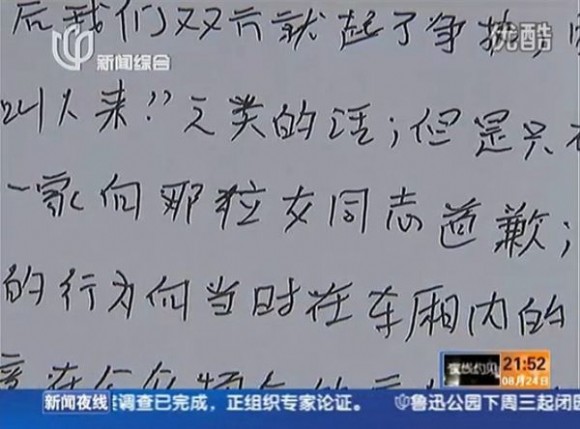 新闻综合
优酷
后我们双方就起了争执,
叫人来!”之类的话;但是只
一家向那位女同志道歉;
的行为向当时在车厢内的
夜线约见
21:52
08月24日
新闻夜线 调查已完成，正组织专家论证。 鲁迅公园下周三起闭